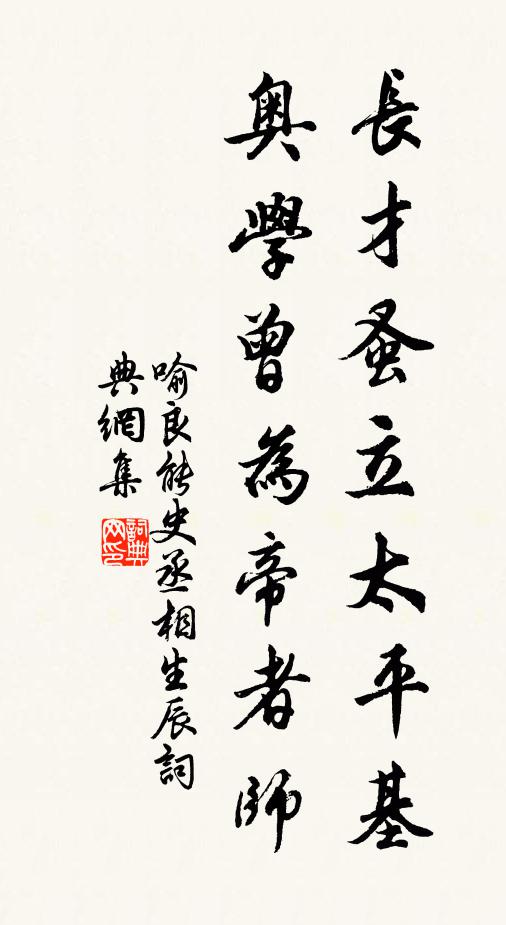 長才蚤立太平基
奥學曾為帝者師
喻良能史丞相生辰詞
典網集
詞典网印